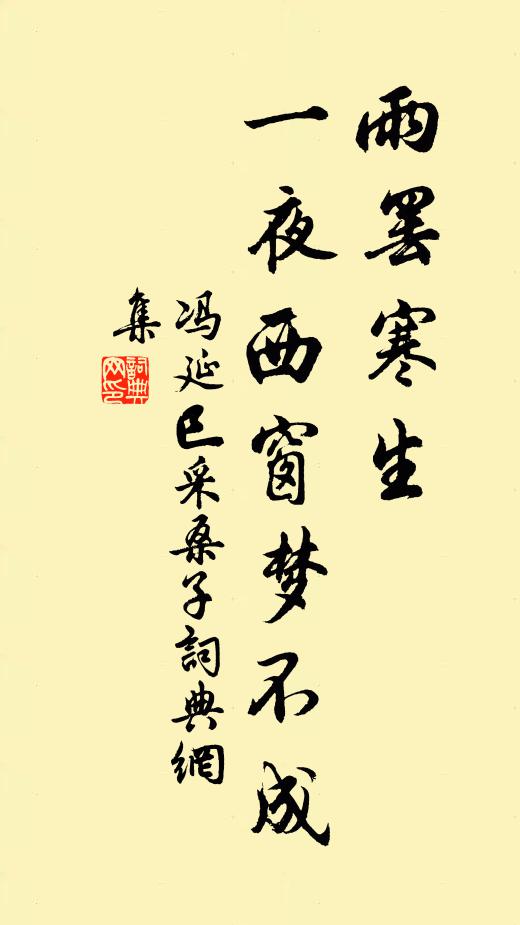 雨罢寒生
一夜西窗梦不成
冯延巳采桑子詞典網
集
詞典
网印